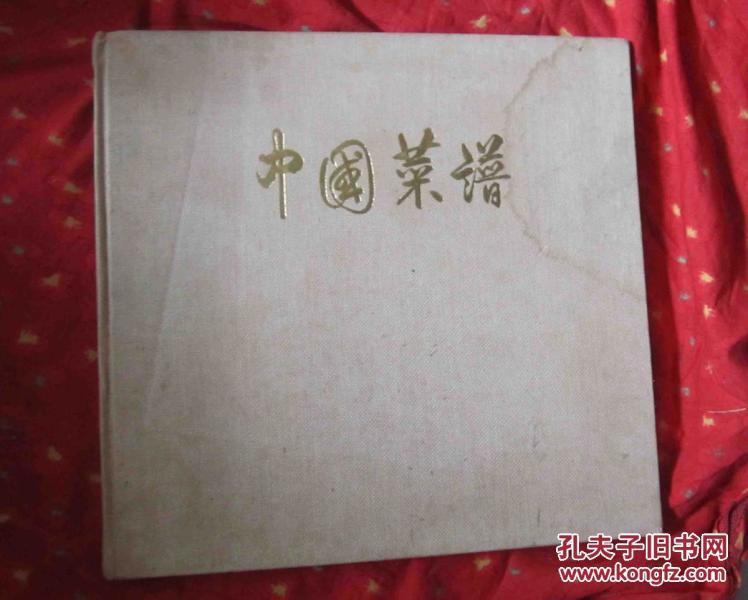 中國菜谱
孔夫子旧书网
www.kongfz.com